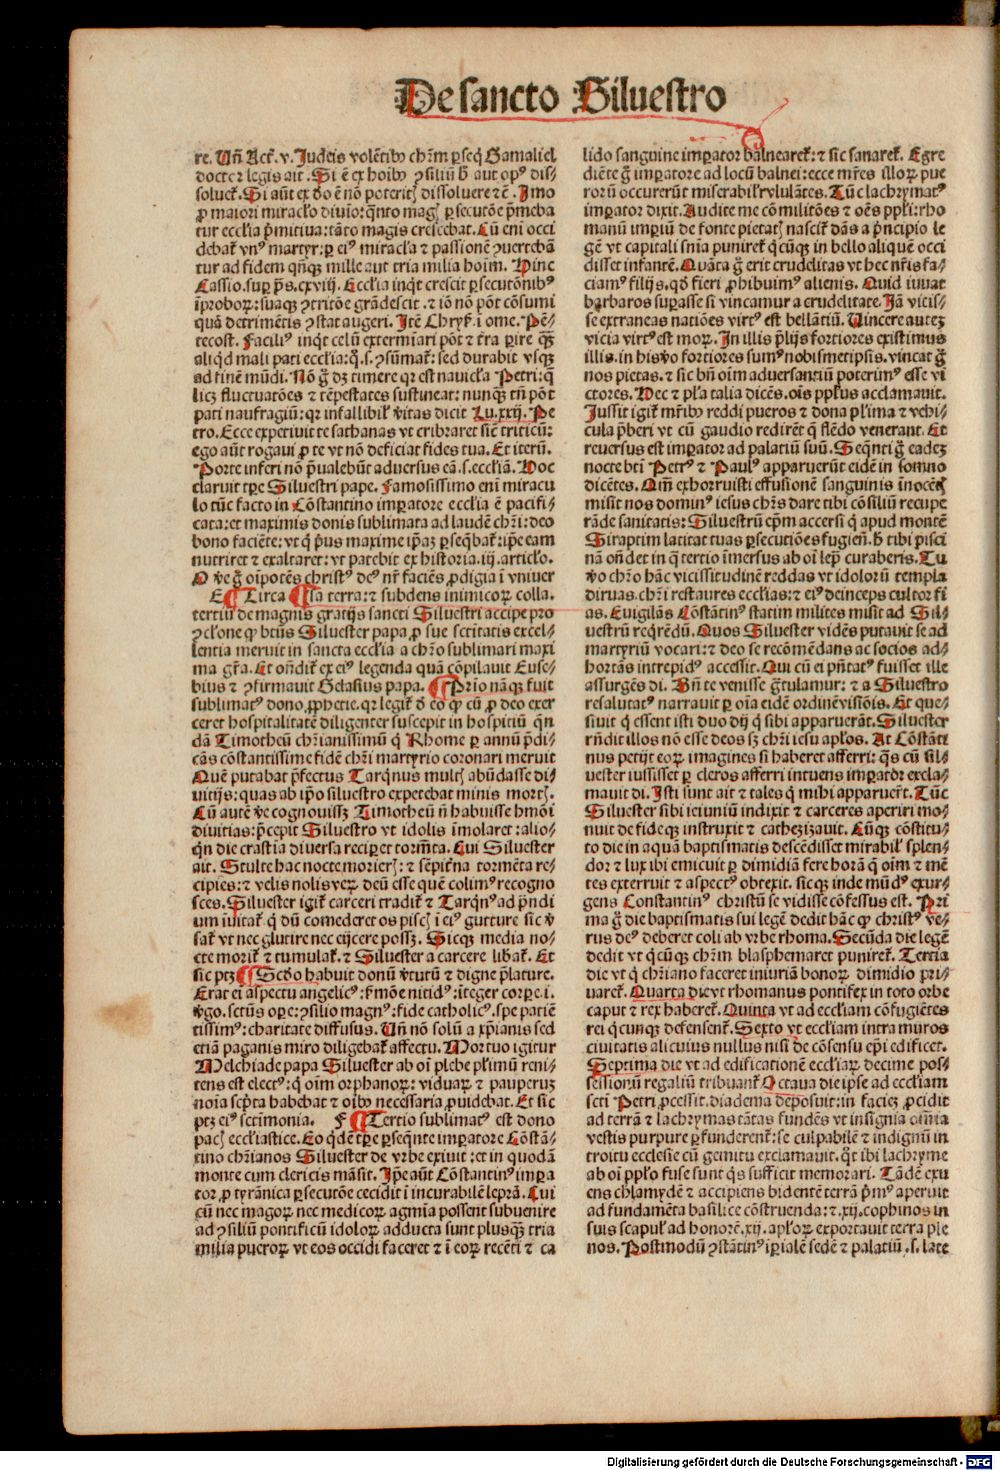 De sancto Siluestro
re. Vñ Act̃. v. Judeis volẽtibꝰ chr̃m ꝑseq̃ Gamaliel
doctor legis ait. Si ẽ ex hoibꝰ ↄsiliũ h̃ aut opꝰ dis-
soluet̃. Si aũt ex deo ẽ nõ poterit̃ dissoluere ⁊c̃. Jmo
ꝓ maiori miracl̃o diuio: q̃nto mag̃ ꝑsecutõe p̃meba
tur eccl̃ia p̃mitiua: tãto magis crescebat. Cũ eni occi
debat̃ vnꝰ martyr: ꝑ eiꝰ miracl̃a ⁊ passionẽ ↄuertebã
tur ad fidem qñqꝫ mille aut tria milia hoim. Hinc
Cassio. suꝑ pš. cxviij. Eccl̃ia inq̃t crescit ꝑsecutõnibꝰ
ĩproboꝝ: suaqꝫ ↄtritõe grãdescit. ⁊ iõ nõ põt cõsumi
quã detrimẽtis ↄstat augeri. Jtẽ Chrys̃. i ome. Pẽ-
tecost. Faciliꝰ inq̃t celũ extermiari põt ⁊ t̃ra ꝑire qꝫ̃
aliqd̃ mali pati eccl̃ia: q̃. s. ↄsũmat̃: sed durabit vsqꝫ
ad finẽ mũdi. Nõ g̃ dꝫ timere qꝛ est nauicl̃a Petri: q̃
licꝫ fluctuatões ⁊ tẽpestates sustineat: nunqꝫ̃ tñ põt
pati naufragiũ: qꝛ infallibil̃ v̾itas dicit Lu. xxij. Pe
tro. Ecce expetiuit te sathanas vt cribraret sic̃ triticũ:
ego aũt rogaui ꝓ te vt nõ deficiat fides tua. Et iterũ.
Porte inferi nõ p̃ualebũt aduersus eã. s. eccl̃iã. Hoc
claruit tp̃e Siluestri pape. Famosissimo eni miracu
lo tũc facto in Cõstantino imꝑatore eccl̃ia ẽ pacifi-
cata: et maximis donis sublimata ad laudẽ chr̃i: deo
bono faciẽte: vt q̃ p̾us maxime ip̃aꝫ ꝑseq̃bat̃: ip̃e eam
nutriret ⁊ exaltaret: vt patebit ex historia. iij. articl̃o.
O v̾e g̃ oĩpotẽs christꝰ deꝰ nr̃ faciẽs ꝓdigia ĩ vniuer
E ¶ Circa ¶ sa terra: ⁊ subdens inimicoꝝ colla.
tertiũ de magnis gratijs sancti Siluestri accipe pro
ↄcl̃one q̃ bt̃us Siluester papa ꝓ sue sc̃titatis excel-
lentia meruit in sancta eccl̃ia a chr̃o sublimari maxi
ma gr̃a. Et oñdit̃ ex eiꝰ legenda quã cõpilauit Euse-
bius ⁊ ↄfirmauit Gelasius papa. ¶ Prio nãqꝫ fuit
sublimatꝰ dono ꝓphetie. qꝛ legit̃ d̃ eo q̃ cũ ꝓ deo exer
ceret hospitalitatẽ diligenter suscepit in hospitiũ q̃n
dã Timotheũ chr̃ianissimũ q̃ Rhome ꝑ annũ p̃di-
cãs cõstantissime fidẽ chr̃i martyrio coronari meruit
Quẽ putabat p̃fectus Tarq̃nus mult̃ abũdasse di-
uitijs: quas ab ip̃o siluestro expetebat minis mort̃.
Cũ autẽ v̾e cognouissꝫ Timotheũ ñ habuisse hmõi
diuitias: p̃cepit Siluestro vt idolis ĩmolaret: alio-
q̃n die crastia diuersa reciꝑet torm̃ta. Cui Siluester
ait. Stulte hac nocte morier̃: ⁊ sẽpit̾na tormẽta re-
cipies: ⁊ velis nolis veꝝ deũ esse quẽ colimꝰ recogno
sces. Siluester igit̃ carceri tradit̃ ⁊ Tarq̃nꝰ ad p̃ndi
um iuitat̃ q̃ dũ comederet os pisc̃ ĩ eiꝰ gutture sic v̾
sat̃ vt nec glutire nec eijcere possꝫ. Sicqꝫ media no-
cte morit̃ ⁊ tumulat̃. ⁊ Siluester a carcere lib̾at̃. Et
sic ptꝫ ¶ Sc̃do habuit donũ v̾tutũ ⁊ digne p̃lature.
Erat ei aspectu angelicꝰ: s̾mõe nitidꝰ: iteger corꝑe. i.
v̾go. sct̃us oꝑe: ↄsilio magnꝰ: fide catholicꝰ. spe patiẽ
tissimꝰ: charitate diffusus. Vñ nõ solũ a xp̃ianis sed
etiã paganis miro diligebat̃ affectu. Mortuo igitur
Melchiade papa Siluester ab oĩ plebe pl̃imũ reni-
tens est electꝰ: q̃ oĩm orphanoꝝ: viduaꝝ ⁊ pauperuꝫ
noĩa scp̃ta habebat ⁊ oĩbꝰ necessaria ꝓuidebat. Et sic
ptꝫ eiꝰ sctĩmonia. F ¶ Tertio sublimatꝰ est dono
pac̃ eccl̃iastice. Eo q̃dẽ tp̃e ꝑseq̃nte imꝑatore Cõstã-
tino chr̃ianos Siluester de vrbe exiuit: et in quodã
monte cum clericis mãsit. Jp̃e aũt Cõstantinꝰ imꝑa
tor ꝓ tyrãnica ꝑsecutõe cecidit ĩ incurabilẽ leprã. Cui
cũ nec magoꝝ nec medicoꝝ agmĩa possent subuenire
ad ↄsiliũ pontificũ idoloꝝ adducta sunt plusqꝫ̃ tria
milia pueroꝝ vt eos occidi faceret ⁊ ĩ eoꝝ recẽti ⁊ ca
lido sanguine imꝑator balnearet̃: ⁊ sic sanaret̃. Egre
diẽte g̃ imꝑatore ad locũ balnei: ecce mr̃es illoꝝ pue
rorũ occurerũt miserabilit̃ vlulãtes. Tũc lachrymatꝰ
imꝑator dixit. Audite me cõmilitões ⁊ oẽs ppl̃i: rho
manũ imꝑiũ de fonte pietat̃ nascit̃ dãs a p̾ncipio le
gẽ vt capitali snĩa puniret̃ q̃cũqꝫ in bello aliquẽ occi
disset infantẽ. Quãta g̃ erit crudelitas vt hec nr̃is fa-
ciamꝰ filijs. qd̃ fieri ꝓhibuimꝰ alienis. Quid iuuat
barbaros suꝑasse si vincamur a crudelitate. Jã vicis-
se extraneas natiões virtꝰ est bellãtiũ. Vincere auteꝫ
vicia virtꝰ est moꝝ. Jn illis p̃lijs fortiores existimus
illis. in his v̾o fortiores sumꝰ nobismetipsis. vincat g̃
nos pietas. ⁊ sic bñ oĩm aduersantiũ poterimꝰ esse vi
ctores. Hec ⁊ pl̃a talia dicẽs. oĩs ppl̃us acclamauit.
Jussit igit̃ mr̃ibꝰ reddi pueros ⁊ dona pl̃ima ⁊ vehi-
cula p̃beri vt cũ gaudio redirẽt q̃ flẽdo venerant. Et
reuersus est imꝑator ad palatiũ suũ. Seq̃nti g̃ eadeꝫ
nocte bt̃i Petrꝰ ⁊ Paulꝰ apparuerũt eidẽ in somno
dicẽtes. Qm̃ exhorruisti effusionẽ sanguinis ĩnocẽtꝫ
misit nos dominꝰ iesus chr̃s dare tibi cõsiliũ recupe
rãde sanitatis: Siluestrũ ep̃m accersi q̃ apud montẽ
Siraptim latitat tuas ꝑsecutiões fugiẽs. h̃ tibi pisci
nã oñdet in q̃ tertio ĩmersus ab oĩ lep̃ curaberis. Tu
v̾o chr̃o hãc vicissitudinẽ reddas vt idolorũ templa
diruas. chr̃i restaures eccl̃ias: ⁊ eiꝰ deinceps cultor fi
as. Euigilãs Cõstãtinꝰ statim milites misit ad Sil-
uestrũ req̃rẽdũ. Quos Siluester vidẽs putauit se ad
martyriũ vocari: ⁊ deo se recõmẽdans ac socios ad-
hortãs intrepidꝰ accessit. Qui cũ ei pñtatꝰ fuisset ille
assurgẽs di. Bñ te venisse g̃tulamur: ⁊ a Siluestro
resalutatꝰ narrauit ꝑ oĩa eidẽ ordinẽ visiõis. Et que-
siuit q̃ essent isti duo dij q̃ sibi apparuerãt. Siluester
rñdit illos nõ esse deos sꝫ chr̃i iesu apl̃os. At Cõstãti
nus petijt eoꝝ imagines si haberet afferri: q̃s cũ sil-
uester iussisset ꝑ cleros afferri intuens imꝑator excla-
mauit di. Jsti sunt ait ⁊ tales q̃ mihi apparuer̃t. Tũc
Siluester sibi ieiuniũ indixit ⁊ carceres aperiri mo-
nuit de fideqꝫ instruxit ⁊ cathezizauit. Cũqꝫ cõstitu-
to die in aquã baptismatis descẽdisset mirabil̃ splen-
dor ⁊ lux ibi emicuit ꝑ dimidiã fere horã q̃ oĩm ⁊ mẽ
tes exterruit ⁊ aspectꝰ obtexit. sicqꝫ inde mũdꝰ exur-
gens Constantinꝰ christũ se vidisse cõfessus est. Pri
ma g̃ die baptismatis sui legẽ dedit hãc q̃ christꝰ ve-
rus deꝰ deberet coli ab vrbe rhoma. Secũda die legẽ
dedit vt q̃cũqꝫ chr̃m blasphemaret puniret̃. Tertia
die vt q̃ chr̃iano faceret iniuriã bonoꝝ dimidio pri-
uaret̃. Quarta die vt rhomanus pontifex in toto orbe
caput ⁊ rex haberet̃. Quinta vt ad eccl̃iam cõfugiẽtes
rei q̃cunqꝫ defensent̃. Sexto vt eccl̃iam intra muros
ciuitatis alicuius nullus nisi de cõsensu ep̃i edificet.
Septima die vt ad edificationẽ eccl̃iaꝝ decime pos-
sessionũ regaliũ tribuant̃. Octaua die ip̃e ad eccl̃iam
scti Petri ꝓcessit. diadema deposuit: in facieꝫ ꝓcidit
ad terrã ⁊ lachrymas tãtas fundẽs vt insignia omĩa
vestis purpure ꝑfunderent̃: se culpabilẽ ⁊ indignũ in
troitu ecclesie cũ gemitu exclamauit. q̃t ibi lachryme
ab oĩ pp̃lo fuse sunt q̃s sufficit memorari. Tãdẽ exu
ens chlamydẽ ⁊ accipiens bidentẽ terrã p̾mꝰ aperuit
ad fundamẽta basilice cõstruenda: ⁊ .xij. cophinos in
suis scapul̃ ad honorẽ .xij. apl̃oꝝ exportauit terra ple
nos. Postmodũ ↄstãtinꝰ iꝑialẽ sedẽ ⁊ palatiũ .s. late
Digitalisierung gefördert durch die Deutsche Forschungsgemeinschaft - DFG